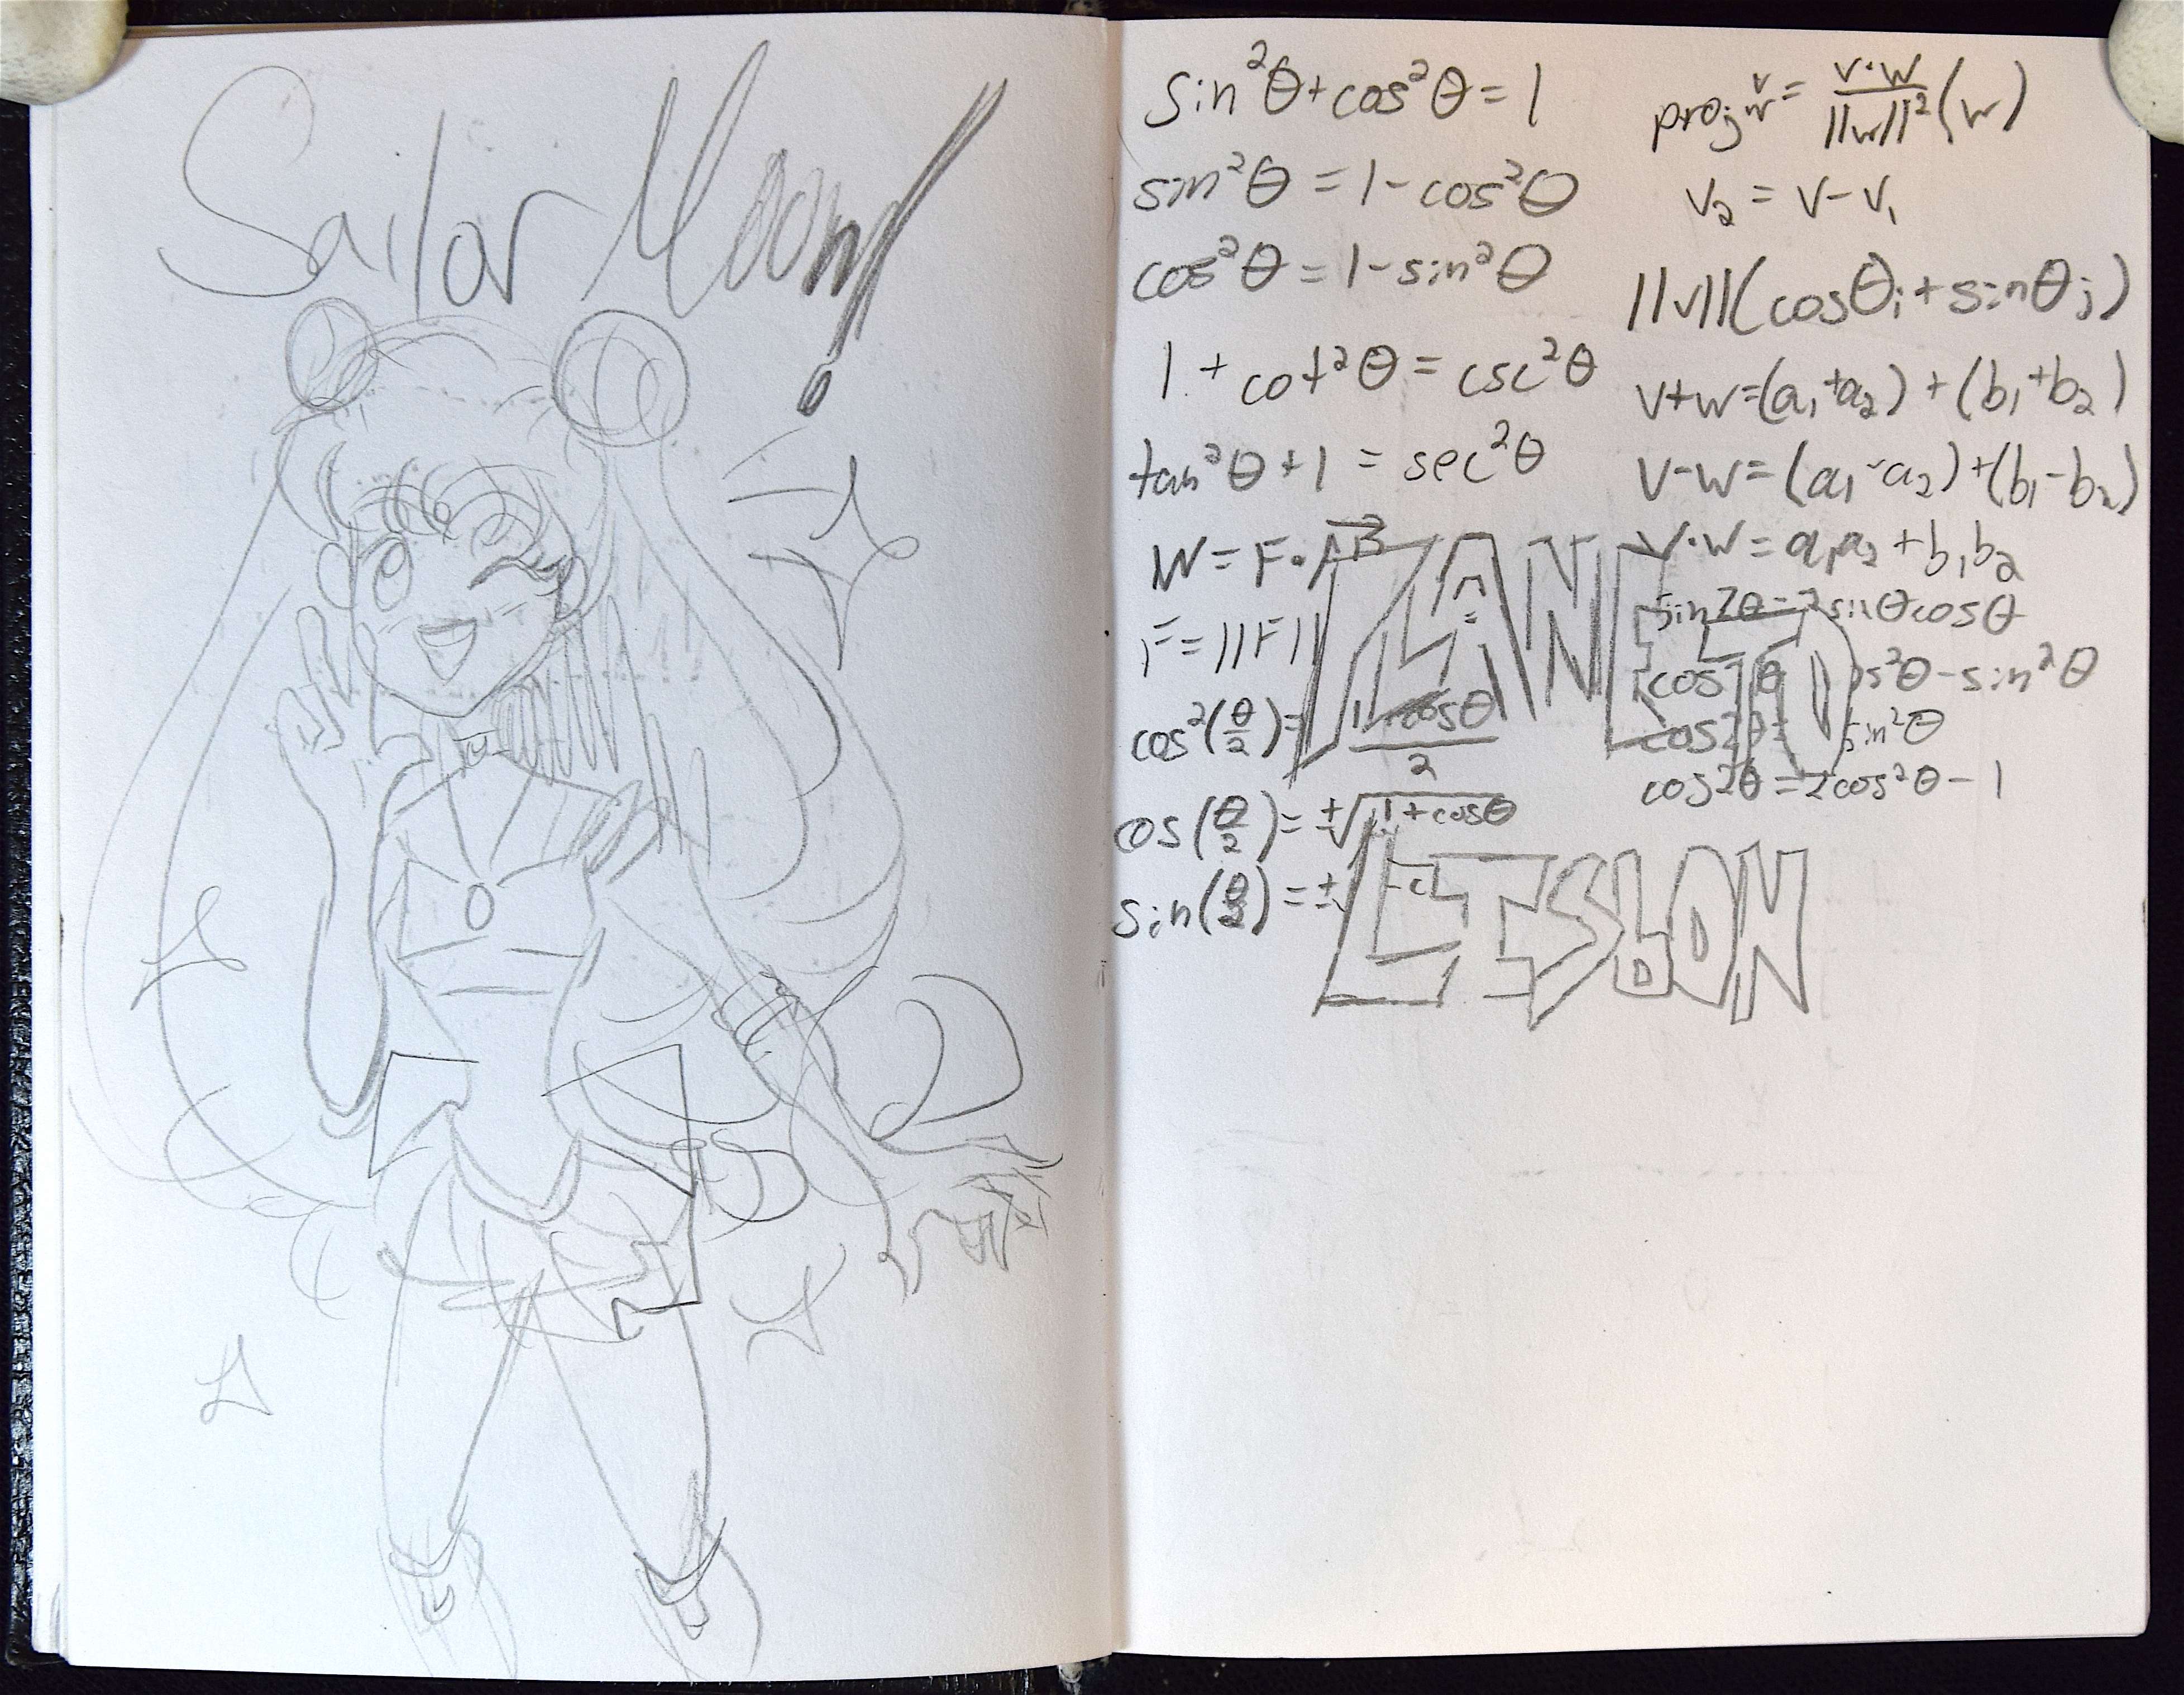 Sailor Moon!
sin²θ+cos²θ=1
sin²θ=1-cos²θ
cos²θ=1-sin²θ
1+cot²θ=csc²θ
tan²θ+1=sec²θ
W=F·AB
F=||F||
cos²(θ/2)=
cosθ
2
cos(θ/2)=±√1+cosθ
sin(θ/2)=±√
proj w v = v·w/||w||²(w)
v₂=v-v₁
||v||(cosθi+sinθj)
v+w=(a₁+a₂)+(b₁+b₂)
v-w=(a₁-a₂)+(b₁-b₂)
v·w=a₁a₂+b₁b₂
sin2θ=2sinθcosθ
cos θ os²θ-sin²θ
cos2θ= sin²θ
cos2θ=2cos²θ-1